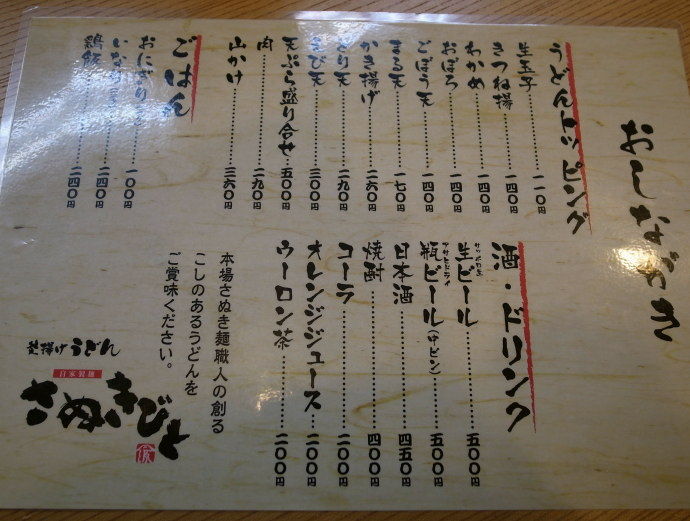 おしながき
うどんトッピング
生玉子 一一〇円
きつね揚 一四〇円
わかめ 一四〇円
おぼろ 一四〇円
ごぼう天 一四〇円
まる天 一七〇円
かき揚げ 二六〇円
とり天 二九〇円
えび天 三〇〇円
天ぷら盛り合せ 五〇〇円
肉 二九〇円
山かけ 三六〇円
ごはん
おにぎり 一〇〇円
いなり 二四〇円
鶏飯 二四〇円
酒・ドリンク
サッポロ生
生ビール 五〇〇円
アサヒドライ
瓶ビール(中ビン) 五〇〇円
日本酒 四五〇円
焼酎 四〇〇円
コーラ 二〇〇円
オレンジジュース 二〇〇円
ウーロン茶 二〇〇円
本場さぬき麺職人の創る
こしのあるうどんを
ご賞味ください。
釜揚げうどん
自家製麺
さぬきびと